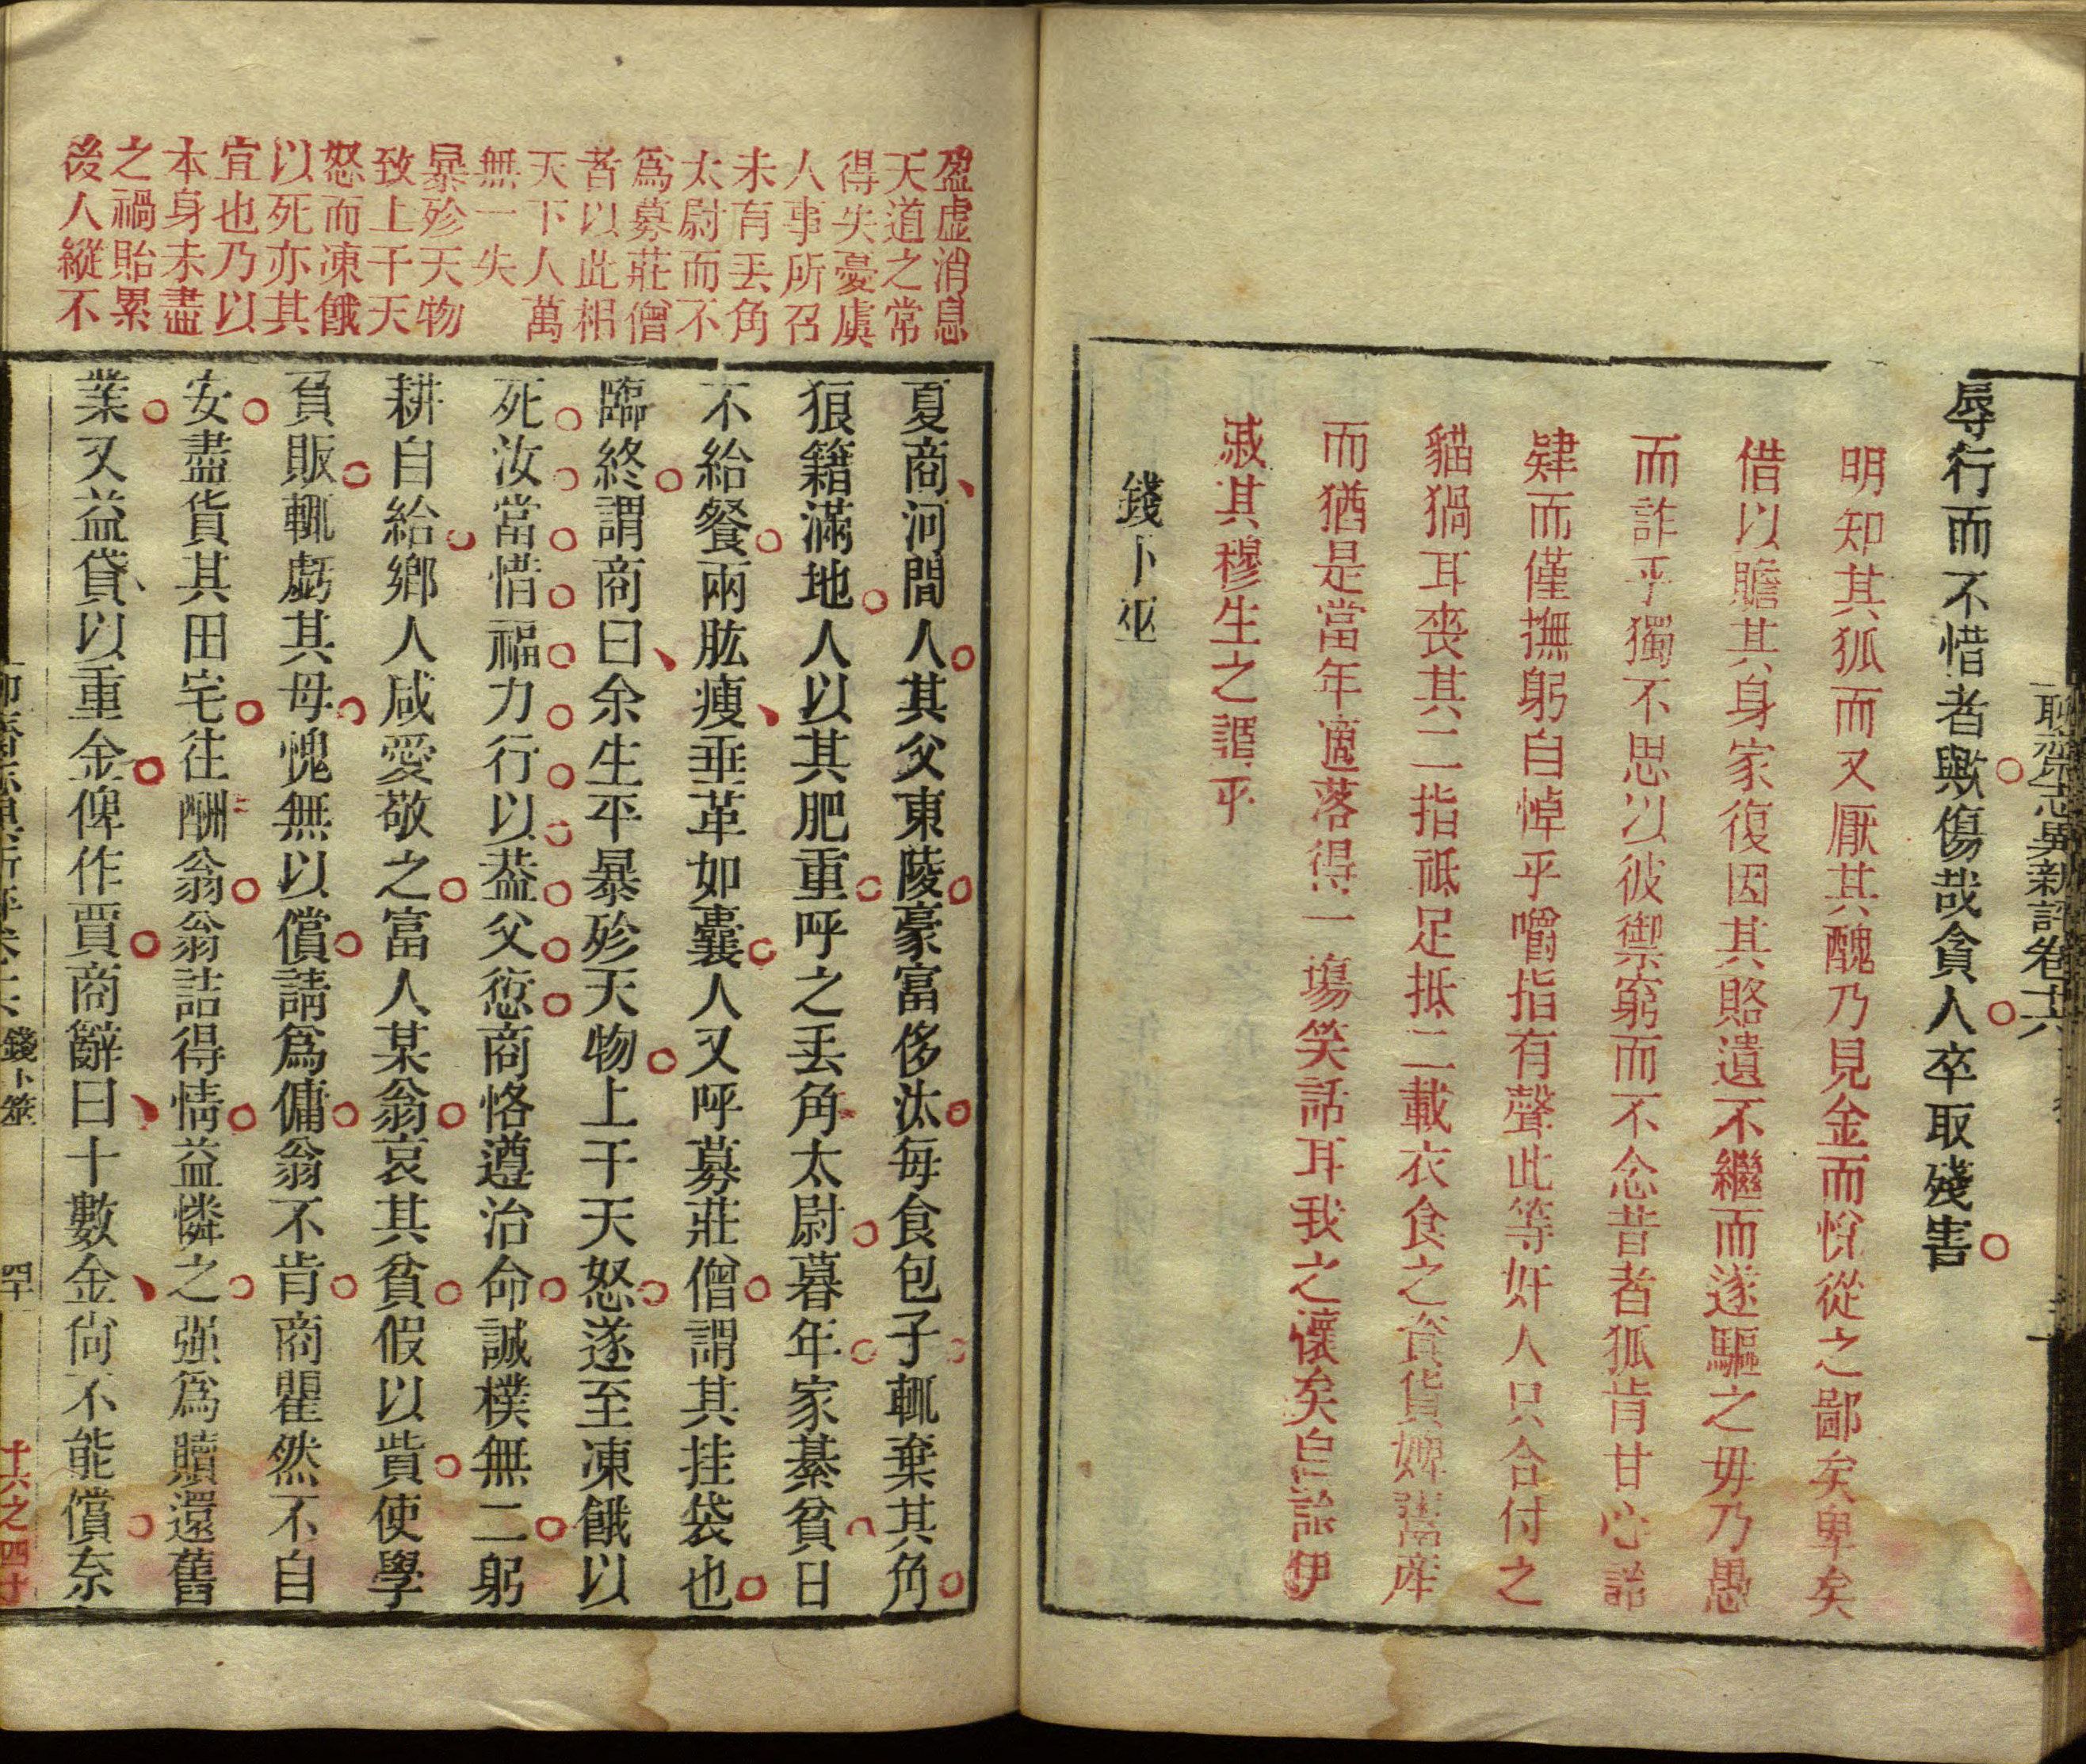 聊齋志異新評卷十六
辱行而不惜者歟傷哉貪人卒取殘害
明知其狐而又厭其醜乃見金而悅從之鄙矣卑矣
借以贍其身家復因其賂遺不繼而遂驅之毋乃愚
而詐乎獨不思以彼禦禦窮而不念昔者狐肯甘心詒
肄而僅撫躬自悼乎嚼指有聲此等奸人只合付之
貓猧耳喪其二指祗足抵二載衣食之資貨婢鬻産
而猶是當年適落得一塲笑話耳我之懷矣自詒伊
戚其穆生之謂乎
錢卜巫
盈虛消息
天道之常
得失憂虞
人事所召
未有丟角
太尉而不
爲募莊僧
者以此相
天下人萬
無一失
暴殄天物
致上干天
怒而凍餓
以死亦其
宜也乃以
本身未盡
之禍貽累
後人縱不
夏商河間人其父東陵豪富侈汰每食包子輒棄其角
狼籍滿地人以其肥重呼之丟角太尉暮年家綦貧日
不給餐兩肱瘦垂革如囊人又呼募莊僧謂其挂袋也
臨終謂商曰余生平暴殄天物上干天怒遂至凍餓以
死汝當惜福力行以葢父愆商恪遵治命誠樸無二躬
耕自給鄉人咸愛敬之富人某翁哀其貧假以貲使學
負販輒虧其母愧無以償請爲傭翁不肯商瞿然不自
安盡貨其田宅往酬翁翁詰得情益憐之强爲贖還舊
業又益貸以重金俾作賈商辭曰十數金尙不能償奈
錢卜巫
四十
十六之四十